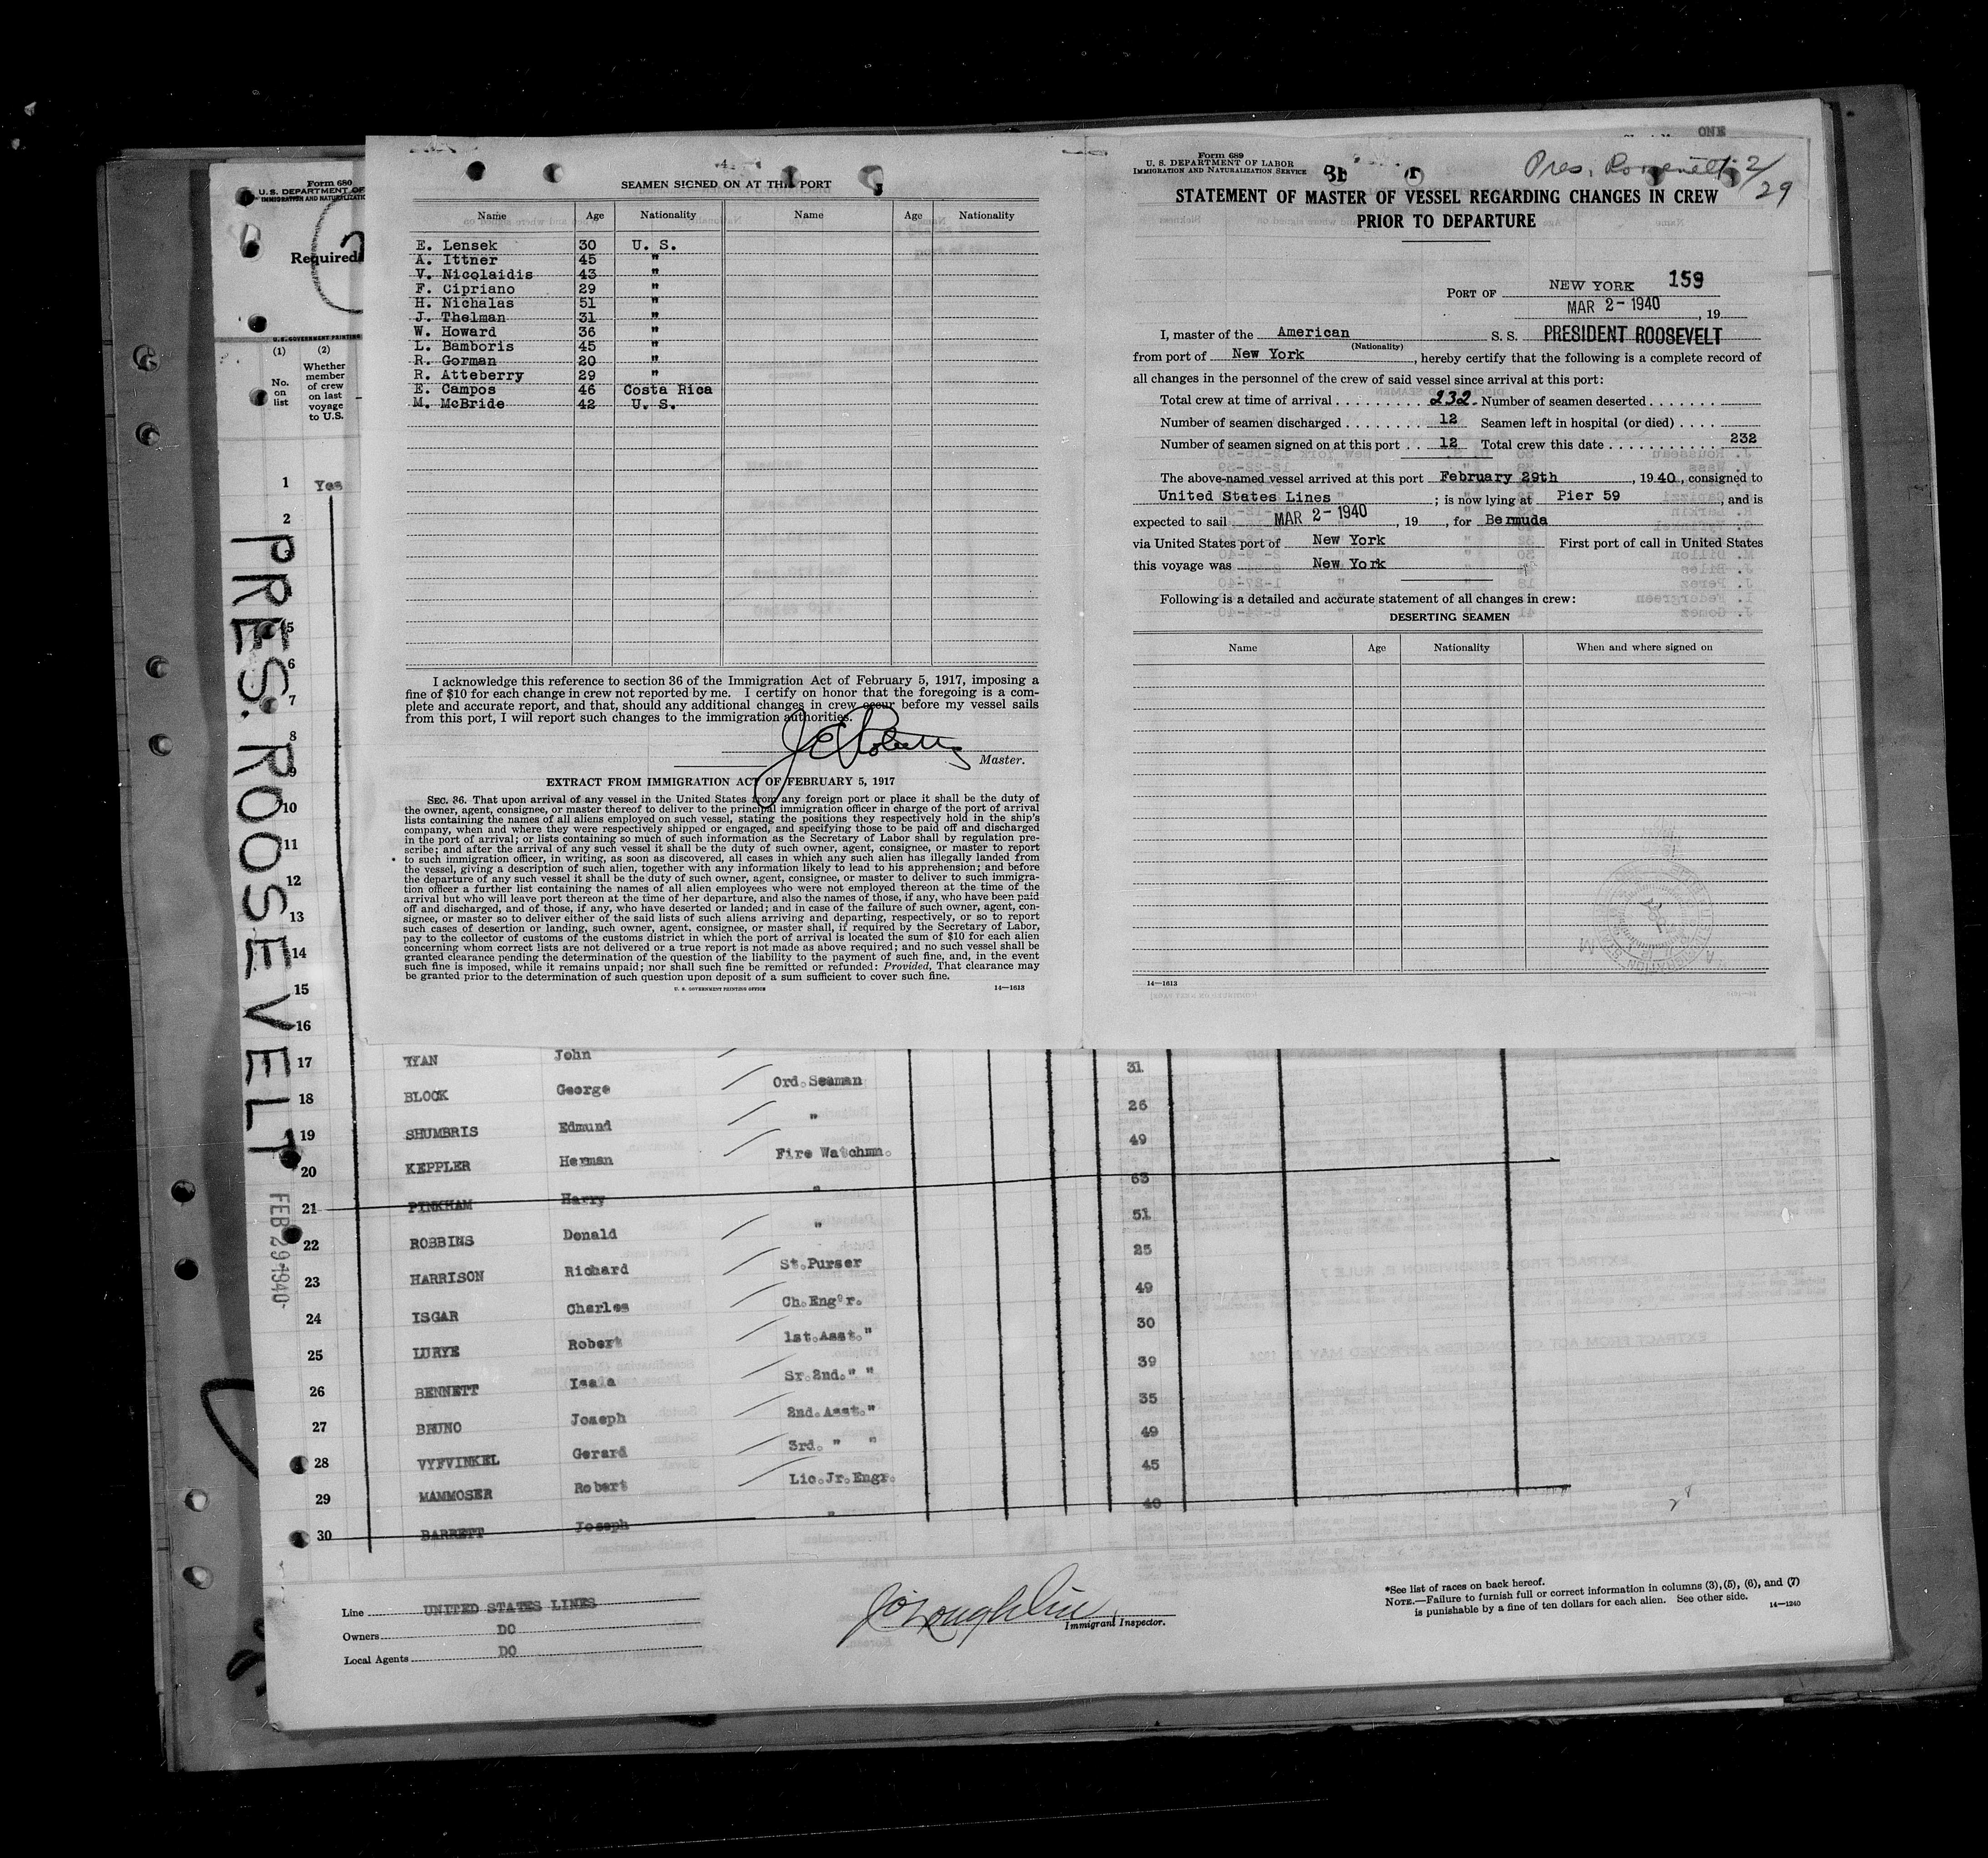 Form 680
U. S. DEPARTMENT OF
IMMIGRATION AND NATURALIZATIO
Required
U. S. GOVERNMENT PRINTING
(1) (2)
No. on list
Whether member of crew on last voyage to U.S.
1 Yes
2
5
6
7
8
9
10
11
12
13
14
15
16
PRES. ROOSEVELT
FEB 29 1940
4
SEAMEN SIGNED ON AT THIS PORT
Name Age Nationality Name Age Nationality
E. Lensek 30 U. S.
A. Ittner 45 "
V. Nicolaidis 43 "
F. Cipriano 29 "
H. Nichalas 51 "
J. Thelman 31 "
W. Howard 36 "
L. Bamboris 45 "
R. Gorman 20 "
R. Atteberry 29 "
E. Campos 46 Costa Rica
M. McBride 42 U. S.
I acknowledge this reference to section 36 of the Immigration Act of February 5, 1917, imposing a
fine of $10 for each change in crew not reported by me. I certify on honor that the foregoing is a com-
plete and accurate report, and that, should any additional changes in crew occur before my vessel sails
from this port, I will report such changes to the immigration authorities.
J E Roberts
Master.
EXTRACT FROM IMMIGRATION ACT OF FEBRUARY 5, 1917
SEC. 36. That upon arrival of any vessel in the United States from any foreign port or place it shall be the duty of
the owner, agent, consignee, or master thereof to deliver to the principal immigration officer in charge of the port of arrival
lists containing the names of all aliens employed on such vessel, stating the positions they respectively hold in the ship's
company, when and where they were respectively shipped or engaged, and specifying those to be paid off and discharged
in the port of arrival; or lists containing so much of such information as the Secretary of Labor shall by regulation pre-
scribe; and after the arrival of any such vessel it shall be the duty of such owner, agent, consignee, or master to report
to such immigration officer, in writing, as soon as discovered, all cases in which any such alien has illegally landed from
the vessel, giving a description of such alien, together with any information likely to lead to his apprehension; and before
the departure of any such vessel it shall be the duty of such owner, agent, consignee, or master to deliver to such immigra-
tion officer a further list containing the names of all alien employees who were not employed thereon at the time of the
arrival but who will leave port thereon at the time of her departure, and also the names of those, if any, who have been paid
off and discharged, and of those, if any, who have deserted or landed; and in case of the failure of such owner, agent, con-
signee, or master so to deliver either of the said lists of such aliens arriving and departing, respectively, or so to report
such cases of desertion or landing, such owner, agent, consignee, or master shall, if required by the Secretary of Labor,
pay to the collector of customs of the customs district in which the port of arrival is located the sum of $10 for each alien
concerning whom correct lists are not delivered or a true report is not made as above required; and no such vessel shall be
granted clearance pending the determination of the question of the liability to the payment of such fine, and, in the event
such fine is imposed, while it remains unpaid; nor shall such fine be remitted or refunded: Provided, That clearance may
be granted prior to the determination of such question upon deposit of a sum sufficient to cover such fine.
U. S. GOVERNMENT PRINTING OFFICE 14—1613
ONE
Form 689
U. S. DEPARTMENT OF LABOR
IMMIGRATION AND NATURALIZATION SERVICE
Pres. Roosevelt 2/29
STATEMENT OF MASTER OF VESSEL REGARDING CHANGES IN CREW
PRIOR TO DEPARTURE
PORT OF NEW YORK 159
MAR 2 - 1940, 19
I, master of the American S. S. PRESIDENT ROOSEVELT
(Nationality)
from port of New York, hereby certify that the following is a complete record of
all changes in the personnel of the crew of said vessel since arrival at this port:
Total crew at time of arrival 232 Number of seamen deserted
Number of seamen discharged 12 Seamen left in hospital (or died)
Number of seamen signed on at this port 12 Total crew this date 232
The above-named vessel arrived at this port February 29th, 1940, consigned to
United States Lines; is now lying at Pier 59, and is
expected to sail MAR 2 - 1940, 19, for Bermuda
via United States port of New York First port of call in United States
this voyage was New York
Following is a detailed and accurate statement of all changes in crew:
DESERTING SEAMEN
Name Age Nationality When and where signed on
14—1613
17 John 31
18 BLOCK George Ord. Seaman 26
19 SHUMBRIS Edmund " 49
20 KEPPLER Herman Fire Watchmn. 63
21 PINKHAM Harry " 51
22 ROBBINS Donald " 25
23 HARRISON Richard St. Purser 49
24 ISGAR Charles Ch. Eng'r. 30
25 LURYE Robert 1st. Asst. " 39
26 BENNETT Isaia Sr. 2nd. " " 35
27 BRUNO Joseph 2nd. Asst. " 49
28 VYFVINKEL Gerard 3rd. " " 45
29 MAMMOSER Robert Lic. Jr. Engr. 40
30 BARRETT Joseph "
28
Line UNITED STATES LINES
Owners DO
Local Agents DO
J O'Loughlin
Immigrant Inspector.
*See list of races on back hereof.
NOTE.—Failure to furnish full or correct information in columns (3), (5), (6), and (7)
is punishable by a fine of ten dollars for each alien. See other side. 14—1240